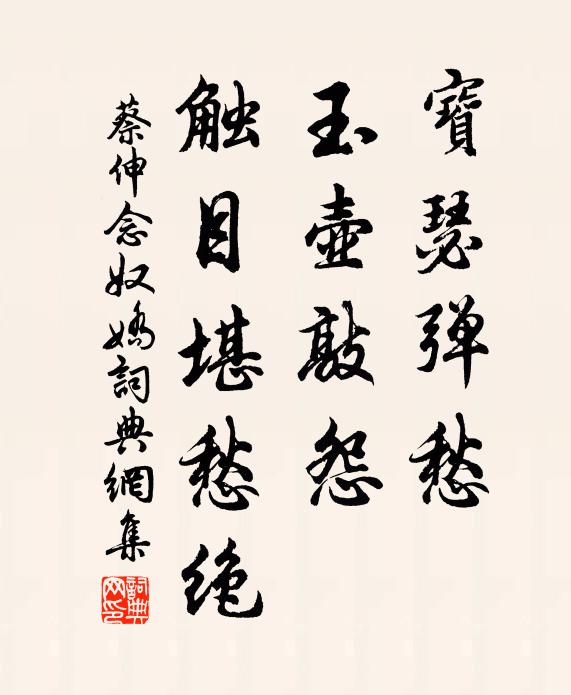 寶瑟弹愁
玉壺敲怨
触目堪愁绝
蔡伸念奴嬌詞典網集
詞典网印